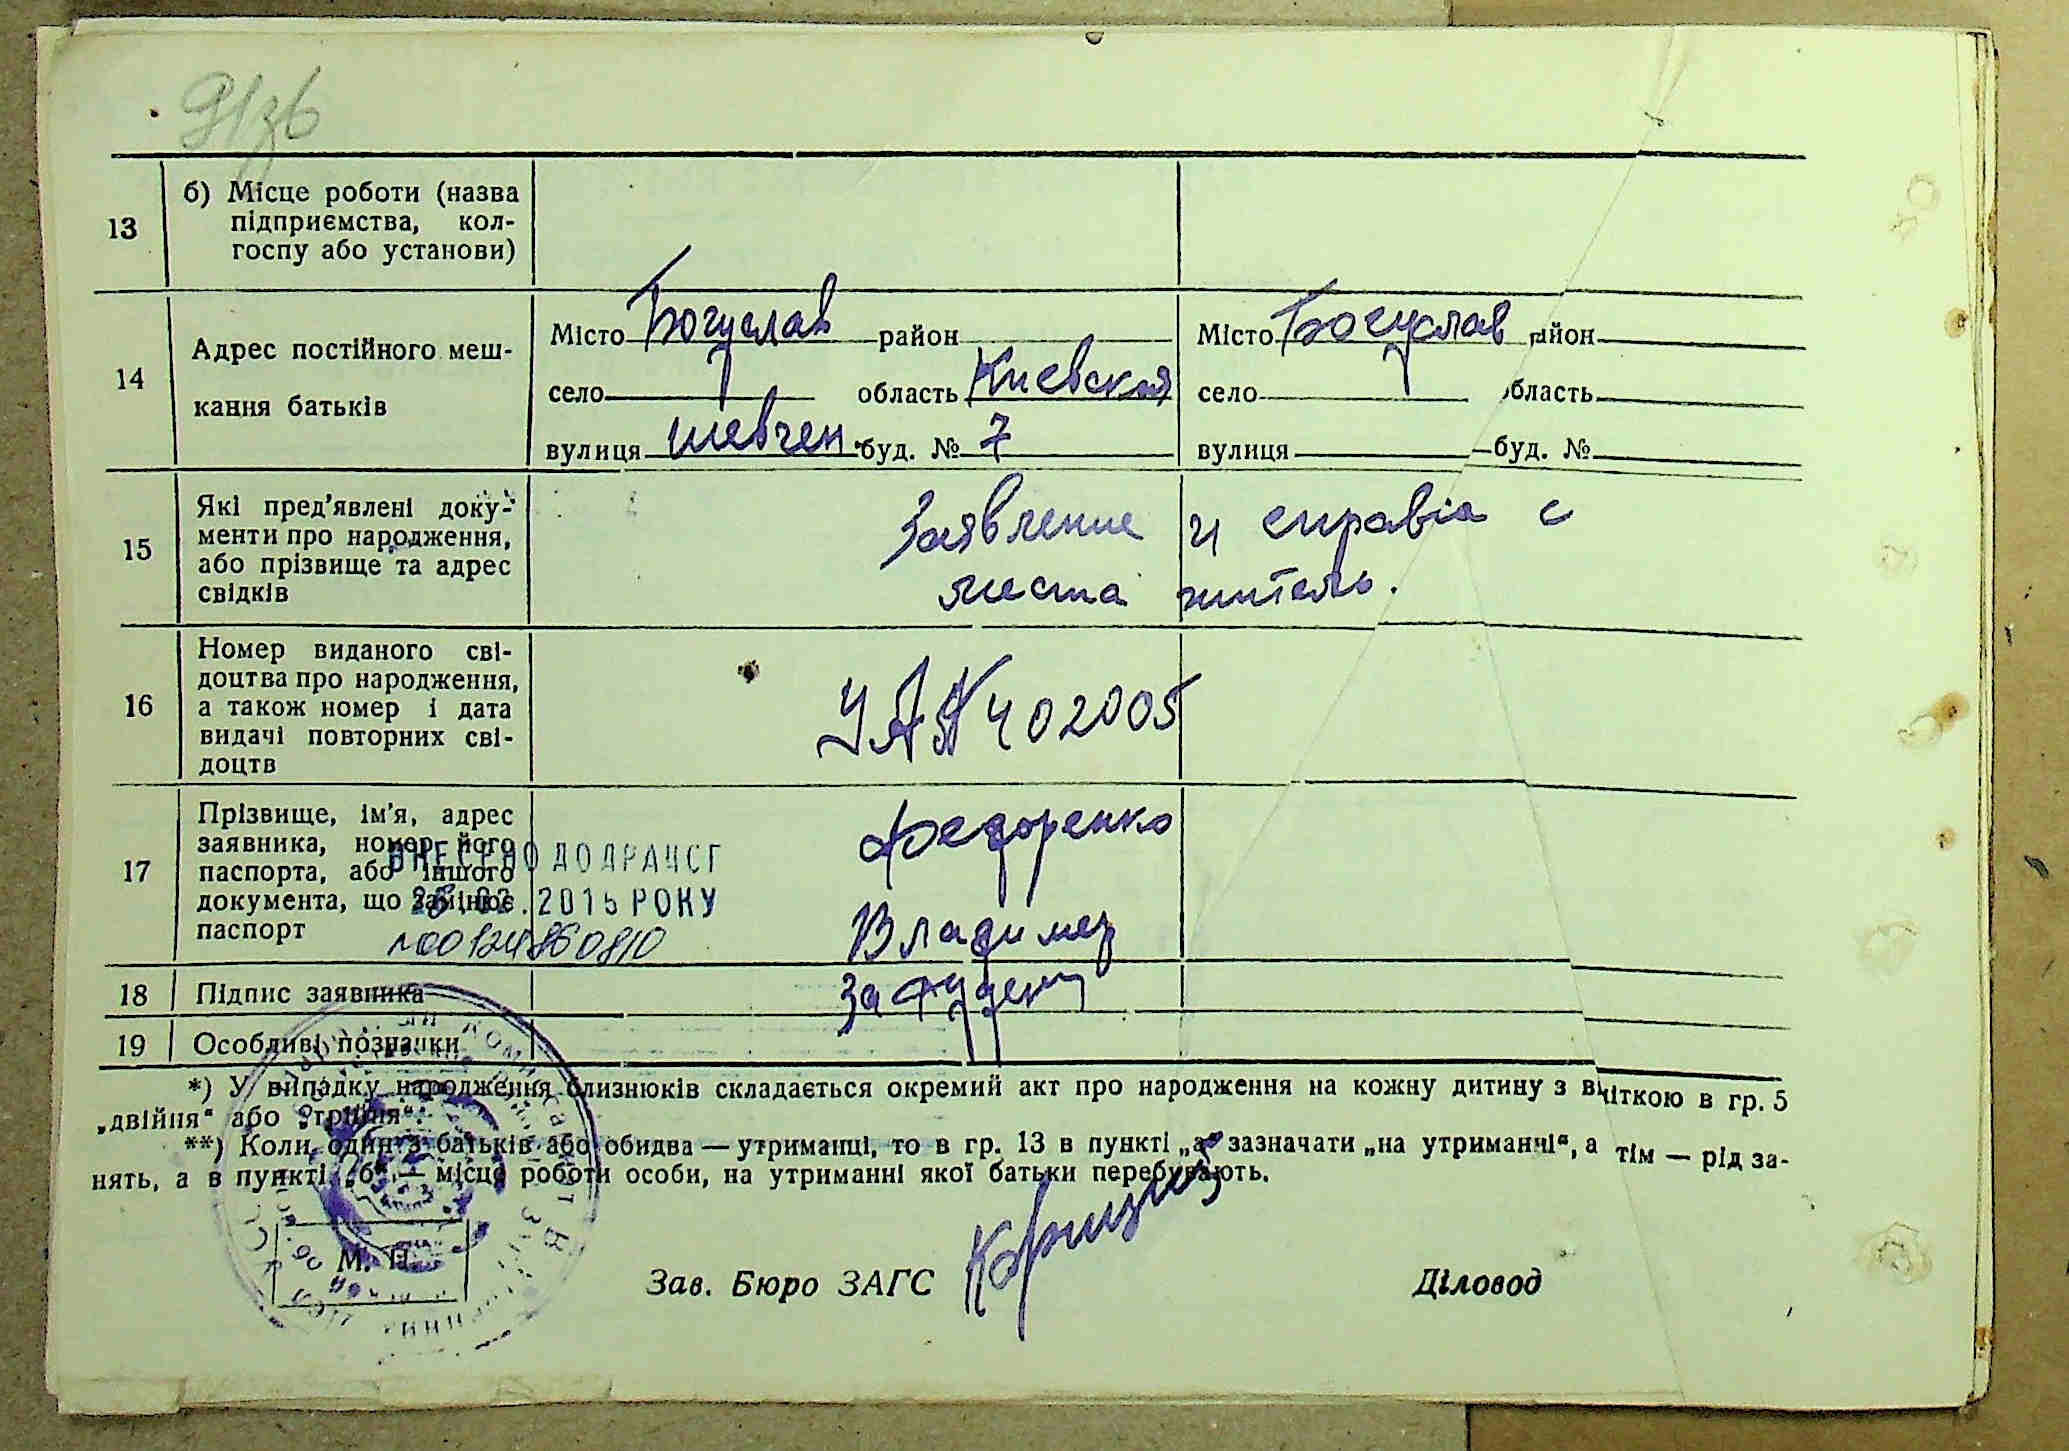 91зв
13
б) Місце роботи (назва
підприємства, кол-
госпу або установи)
14
Адрес постійного меш-
кання батьків
Місто Богуслав район
село область Киевская
вулиця Шевчен. буд. № 7
Місто Богуслав район
село область
вулиця буд. №
15
Які пред'явлені доку-
менти про народження,
або прізвище та адрес
свідків
Заявление и справка с
места житель.
16
Номер виданого сві-
доцтва про народження,
а також номер і дата
видачі повторних сві-
доцтв
УА № 402005
17
Прізвище, ім'я, адрес
заявника, номер його
паспорта, або іншого
документа, що замінює
паспорт
ВНЕСЕНО ДО ДРАЦСГ
2015 РОКУ
№00124860810
Федоренко
Владимир
18
Підпис заявника
19
Особливі позначки
*) У випадку народження близнюків складається окремий акт про народження на кожну дитину з відміткою в гр. 5
„двійня“ або „трійня“.
**) Коли один з батьків або обидва — утриманці, то в гр. 13 в пункті „а“ зазначати „на утриманчі“, а тім — рід за-
нять, а в пункті „б“ — місце роботи особи, на утриманні якої батьки перебувають.
М. П.
Зав. Бюро ЗАГС
Діловод